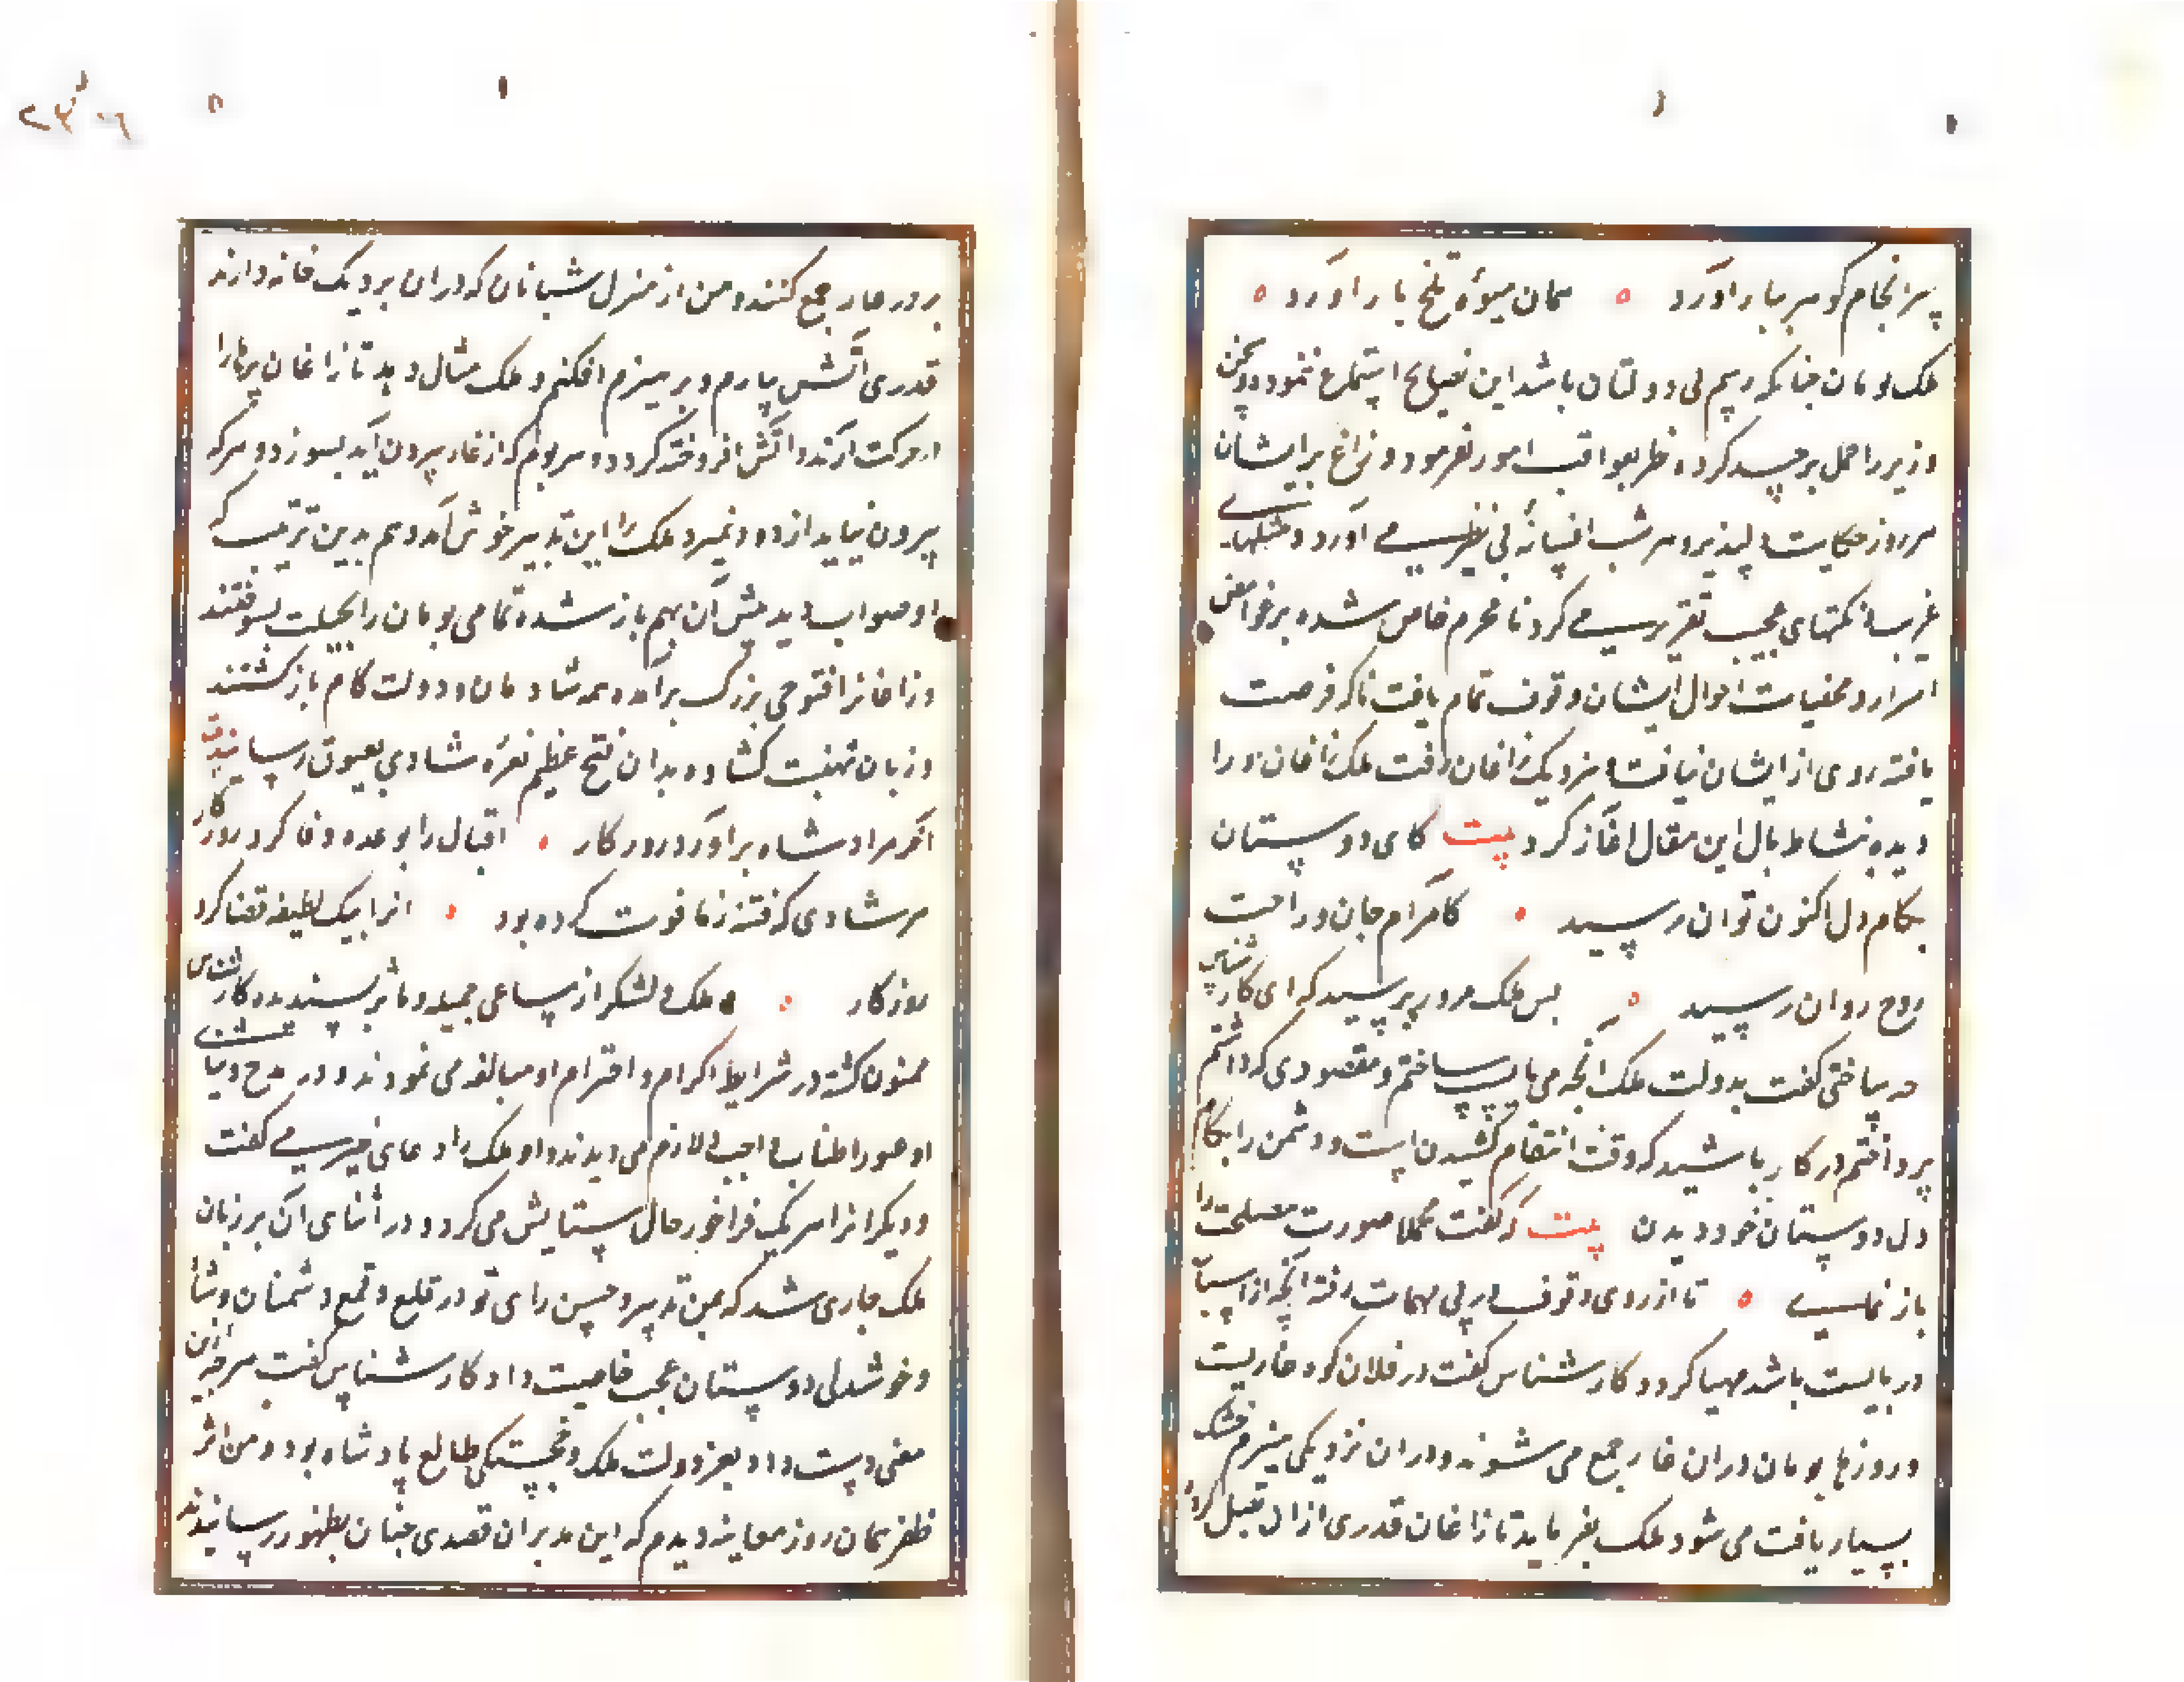 سرانجام گوهر ببار آورد همان میوهٔ تلخ بار آورد
ملک بومان چنانکه رسم بی دولتان باشد این نصایح استماع ننمود و سخن
وزیر را حمل بر حسد کرد و نظر بعواقب امور نفرمود و زاغ برایشان
هر روز حکایت دلپذیر و هر شب افسانهٔ بی نظیر می آورد و مثلهای
غریب و نکتهای عجیب تقریر می کرد تا محرم خاص شده بر غوامض
اسرار و مخفیات احوال ایشان وقوف تمام یافت ناگه فرصت
یافته روی از ایشان بتافت و نزدیک زاغان رفت ملک زاغان او را
دیده نشاط بال این مقال آغاز کرد بیت کای دوستان
بکام دل اکنون توان رسید کارام جان و راحت
روح روان رسید پس ملک مرو را پرسید که ای کارشناس
چه ساختی گفت بدولت ملک آنچه می بایست ساختم و مقصودی که داشتم
پرداختم در کار باشید که وقت انتقام کشیدن است و دشمن را بکام
دل دوستان خود دیدن بیت گر گفت مجملا صورت مصلحت را
باز نمای تا از روی وقوف در پی مهمات رفته آنچه از اسباب
دربایست باشد مهیا گردد کارشناس گفت در فلان کوه غاریست
و روزها بومان دران غار جمع می شوند و دران نزدیکی هیزم خشک
بسیار یافت می شود ملک بفرماید تا زاغان قدری ازان نقل کرده
بر در غار جمع کنند و من از منزل شبانان که دران نزدیک خانه دارند
قدری آتش بیارم و بر هیزم افکنم و ملک مثال دهد تا زاغان پرها را
در حرکت آرند و آتش افروخته گردد و هر بوم که از غار بیرون آید بسوزد و هر که
بیرون نیاید از دود بمیرد ملک را این تدبیر خوش آمد و هم بدین ترتیب که
او صواب دید پیش آن مهم باز شده تمامی بومان را بحیلت بسوختند
و زاغان را فتوحی بزرگ برآمد و همه شادمان و دولت کام بازگشتند
و زبان تهنیت گشاده بدان فتح عظیم نعرهٔ شادی بعیوق رسانیدند بیت
آخر مراد شاه برآورد روزگار اقبال را بوعده وفا کرد روزگار
هر شادی که فتنه زما فوت کرده بود انرا بیک لطیفه قضا کرد
روزگار ملک و لشکر از مساعی جمیله و مآثر پسندیده کارشناس
ممنون گشته در شرایط اکرام و احترام او مبالغه می نمودند و در مدح و ثنای
او صور اطناب واجب و لازم می دیدند و او ملک را دعای خیر می گفت
و دیگرانرا هر یک فراخور حال ستایش می کرد و در اثنای آن بر زبان
ملک جاری شد که یمن تدبیر و حسن رای تو در قلع و قمع دشمنان و شادی
و خوشدلی دوستان عجب خاصیت داد کارشناس گفت هر چه ازین
معنی دست داد بعز دولت ملک و خجستگی طالع پادشاه بود و من اثر
ظفر همان روز معاینه دیدم که این مدبران قصدی چنان بظهور رسانیدند